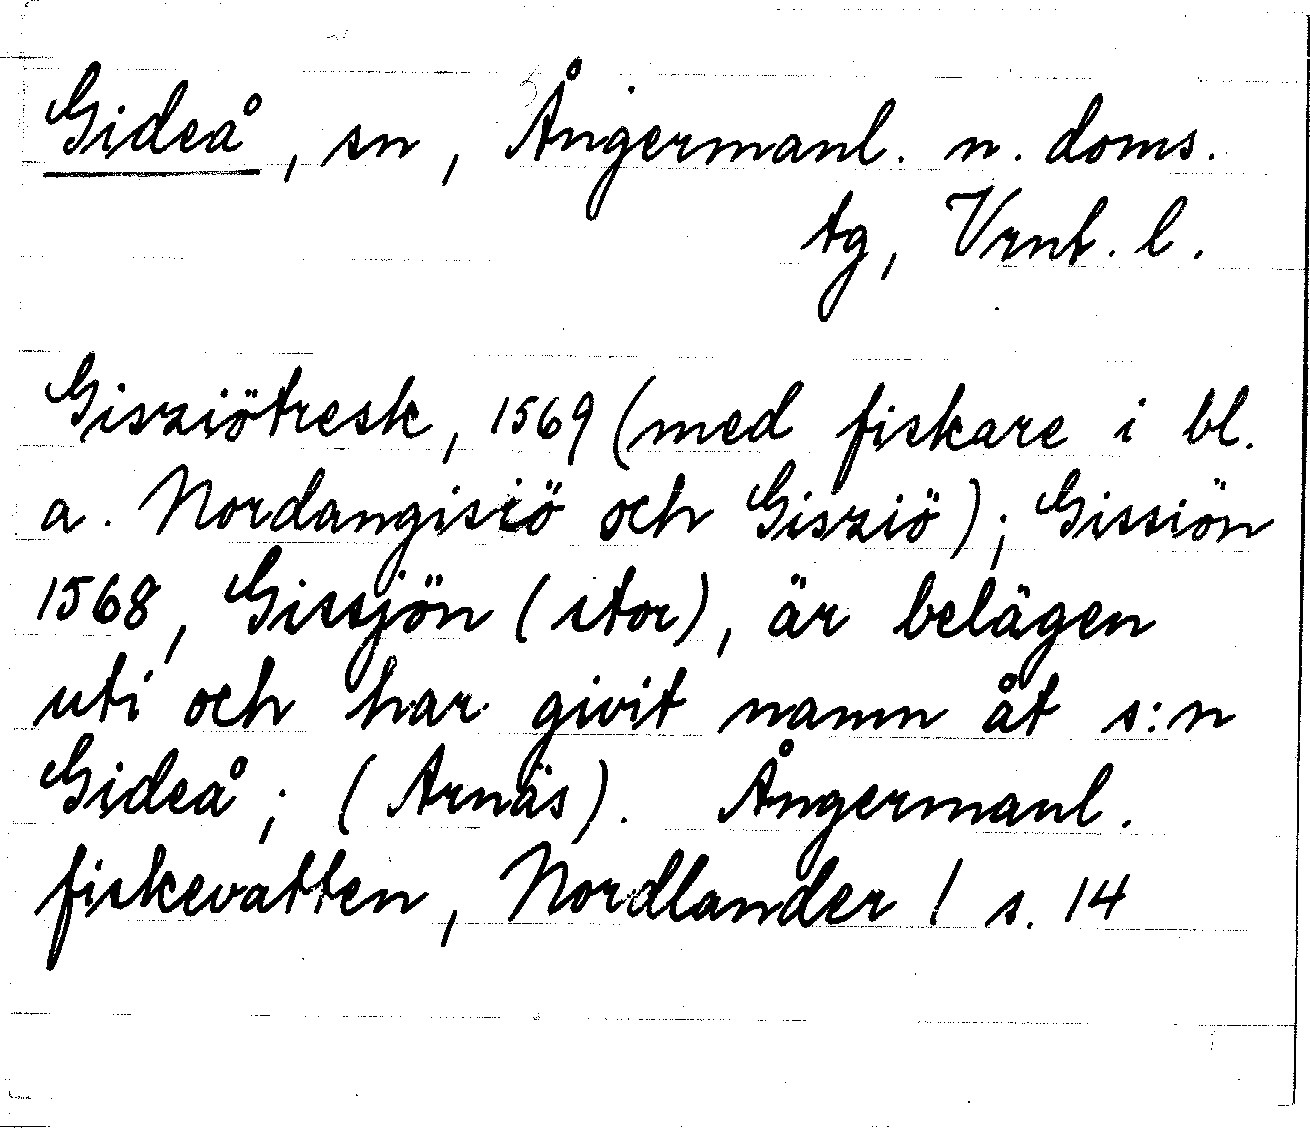 Gideå, sn, Ångermanl. n. doms.
tg, Vrnb. l.
Gisziötresk, 1569 (med fiskare i bl.
a. Nordangisiö och Gisziö); Gissiön
1568, Gissjön (stor), är belägen
uti och har givit namn åt s:n
Gideå; (Arnäs). Ångermanl.
fiskevatten, Nordlander 1 s. 14